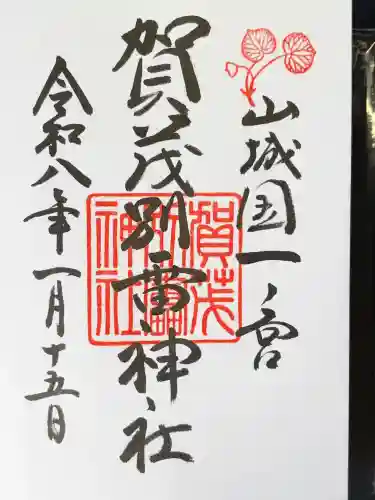 山城国一ノ宮
賀茂別雷神社
賀茂別雷神社
令和八年一月十五日